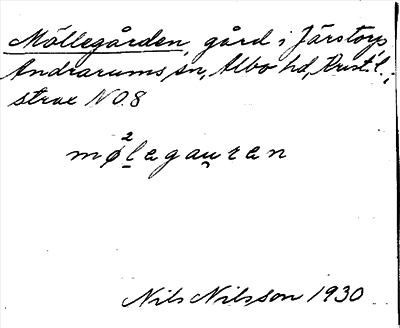 Möllegården, gård i Järstorp,
Andrarums sn, Albo hd, Krist. l.;
strax NO. 8
mø²legau̯ren
Nils Nilsson 1930